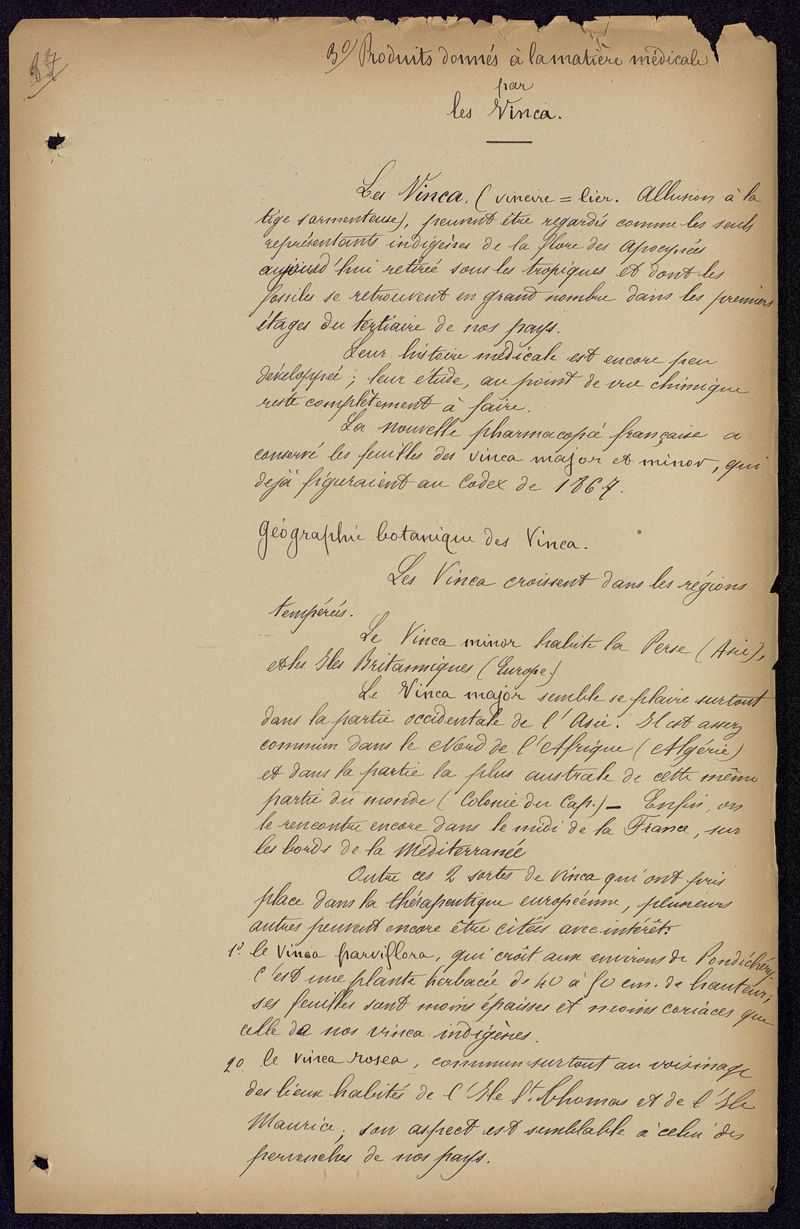 87
3º/ Produits donnés à la matière médicale
par
les Vinca.
Les Vinca, (vincire = lier. Allusion à la
tige sarmenteuse), peuvent être regardés comme les seuls
représentants indigènes de la flore des Apocynées
aujourd'hui retirée sous les tropiques et dont les
fossiles se retrouvent en grand nombre dans les premiers
étages du tertiaire de nos pays.
Leur histoire médicale est encore peu
développée ; leur étude, au point de vue chimique
reste complètement à faire.
La nouvelle pharmacopée française a
conservé les feuilles des vinca major et minor, qui
déjà figuraient au Codex de 1867.
Géographie botanique des Vinca.
Les Vinca croissent dans les régions
tempérées.
Le Vinca minor habite la Perse (Asie),
et les Iles Britanniques (Europe)
Le Vinca major semble se plaire surtout
dans la partie occidentale de l'Asie. Il est assez
commun dans le Nord de l'Afrique (Algérie)
et dans la partie la plus australe de cette même
partie du monde (Colonie du Cap.) — Enfin, on
le rencontre encore dans le midi de la France, sur
les bords de la Méditerranée
Outre ces 2 sortes de vinca qui ont pris
place dans la thérapeutique européenne, plusieurs
autres peuvent encore être citées avec intérêt.
1º le vinca parviflora, qui croît aux environs de Pondichéry.
C'est une plante herbacée de 40 à 50 cm. de hauteur ;
ses feuilles sont moins épaisses et moins coriaces que
celle de nos vinca indigènes.
2º le vinca rosea, commun surtout au voisinage
des lieux habités de l'Ile St. Thomas et de l'Ile
Maurice ; son aspect est semblable à celui des
pervenches de nos pays.